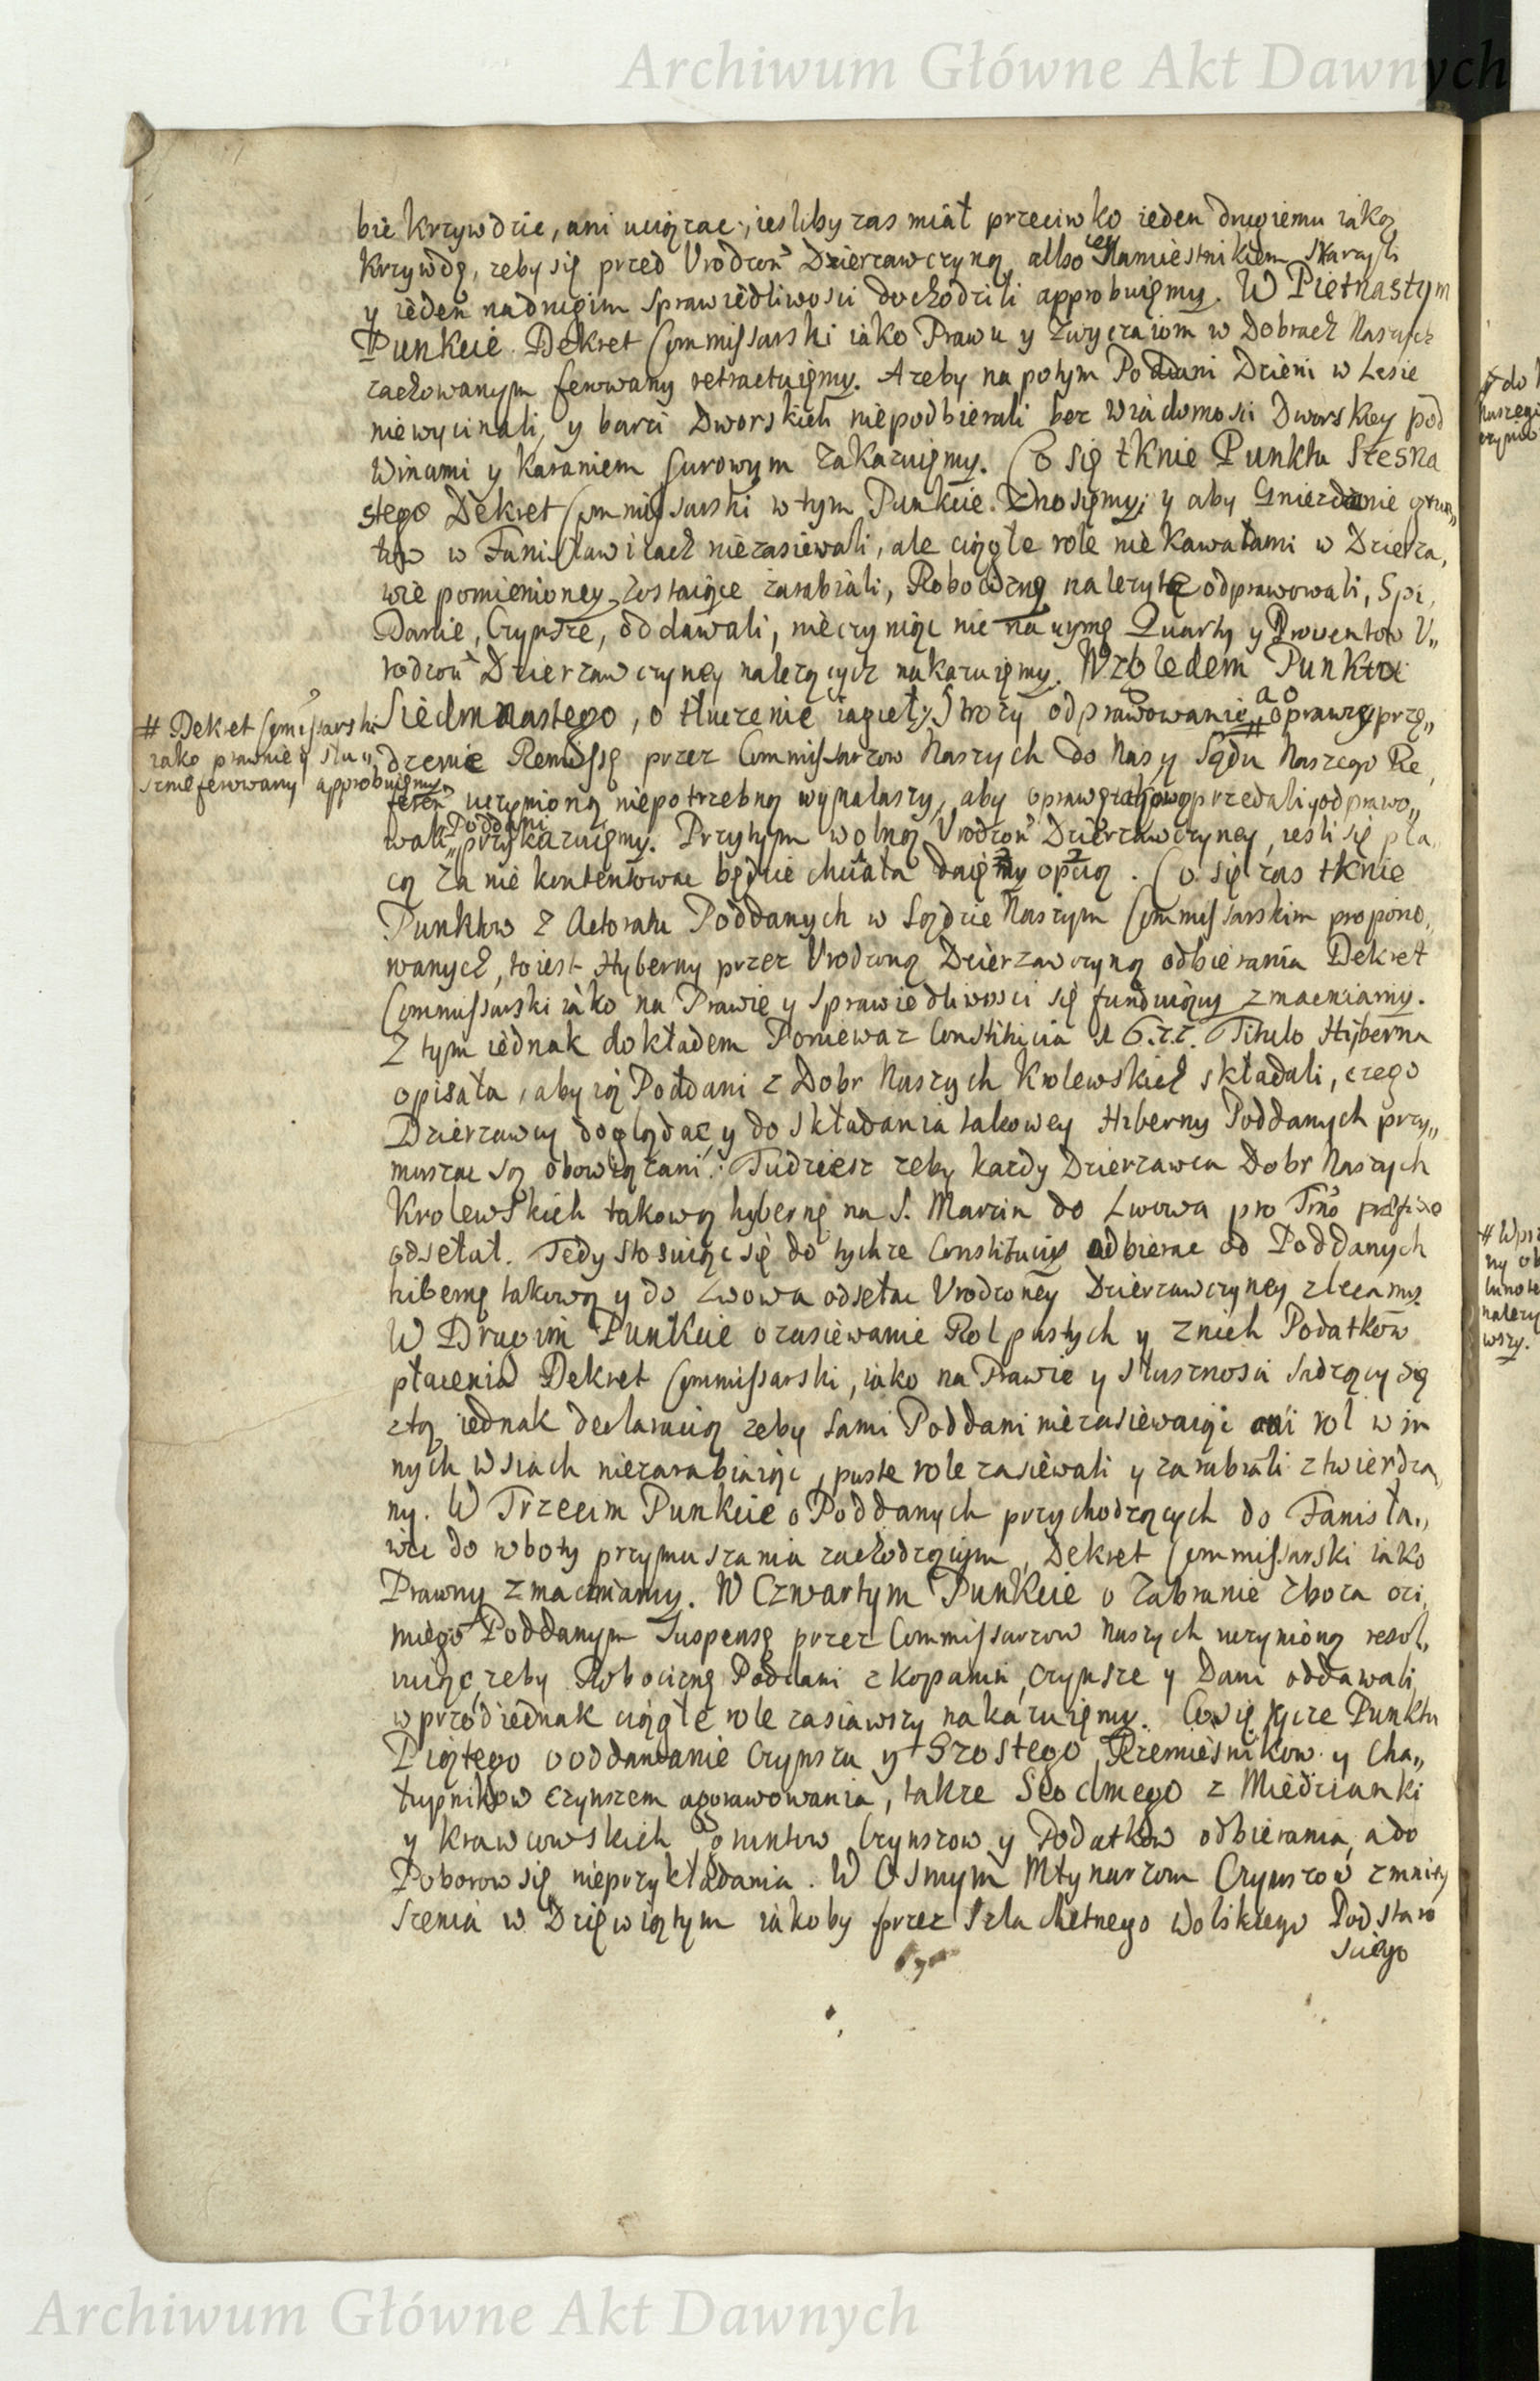 Archiwum Główne Akt Dawnych
bie krzywdzic, ani uciązac, iesliby zas miał przeciwko ieden drugiemu iaką
krzywdę, zeby się przed Vrodzon Dzierzawczyną albo iey Namiestnikiem skarzyli
y ieden nadrugim sprawiedliwosci dochodzili approbuięmy. W Pietnastym
Punkcie Dekret Commissarski iako Prawu y zwyczaiom w Dobrach Naszych
zachowanym ferowany retractuięmy. A zeby na potym Poddani Dzieni w Lesie
niewycinali, y barci Dworskich niepodbierali bez wiadomosci Dworskiey pod
Winami y karaniem surowym zakazuięmy. Co się tknie Punktu Szesna
stego Dekret Commissarski w tym Punkcie znosięmy, y aby Gniezdzanie grun„
tow w Fanisławicach niezasiewali, ale ciągłe role nie kawałami w Dzierza,
wie pomienioney zostaiące zarabiali, Robociznę nalezytą odprawowali, Spi,
Danie, Czynsze, oddawali, nieczyniąc nic na uymę Quarty y Proventow V„
rodzon Dzierzawczyney nalezących nakazuięmy. Względem Punktu
Siedmnastego, o tłuczenie iagieł, Strozy odprawowanie, # a o oprawę przę„
# Dekret Commissarski
iako prawnie y słu„
sznie ferowany approbuięmy
dzenie Remissę przez Commissarzow Naszych do Nas y Sądu Naszego Re,
feren uczynioną niepotrzebną wynalaszy, aby oprawę przedali y odprawo„
wali Poddani przykazuięmy. Przytym wolną Vrodzon Dzierzawczyney, iesli się pła„
cą za nie kontentowac będzie chciała daięmy opcią. Co się zas tknie
Punktow z Actoratu Poddanych w Sądzie Naszym Commissarskim propono„
wanych, to iest Hyberny przez Vrodzoną Dzierzawczyną odbierania Dekret
Commissarski iako na Prawie y Sprawiedliwosci się funduiący zmacniamy.
Z tym iednak dokładem Poniewaz Constitucia Titulo Hiberna
opisała, aby ią Poddani z Dobr Naszych Krolewskich składali, czego
Dzierzawcy doglądac, y do składania takowey Hiberny Poddanych przy„
muszac są obowiązani. Tudziesz zeby kazdy Dzierzawca Dobr Naszych
Krolewskich takową hybernę na S. Marcin do Lwowa pro Trno præfixo
odsełał. Tedy stosuiąc się do tychze Constitucyi odbierac od Poddanych
hibernę takową y do Lwowa odsełac Vrodzoney Dzierzawczyney zlecamy.
W Drugim Punkcie o zasiewanie Rol pustych y znich Podatkow
płacenia Dekret Commissarski, iako na Prawie y słusznosci sadzący się
ztą iednak declaracią zeby sami Poddani niezasiewaiąc ani rol w in
nych wsiach niezarabiaiąc, puste role zasiewali y zarabiali ztwierdza,
my. W Trzecim Punkcie o Poddanych przychodzących do Fanisła„
wic do roboty przymuszania zachodzącym, Dekret Commissarski iako
Prawny zmacniamy. W Czwartym Punkcie o zabranie zboza ozi,
miego Poddanym Suspensę przez Commissarzow Naszych uczynioną resol„
wuiąc, zeby Robociznę Poddani z kopanin, czynsze y Dani oddawali,
wprzod iednak ciągłe role zasiawszy nakazuięmy. Co się tycze Punktu
Piątego o oddawanie Czynszu y Szostego, Rzemiesnikow y Cha„
łupnikow czynszem odprawowania, takze Siodmego z Miedzianki
y Krawcowskich gruntow Czynszow y Podatkow odbierania, a do
Poborow się nieprzykładania. W Osmym Młynarzom Czynszow zmniey
szenia w Dziewiątym iakoby przez Szlachetnego Wolskiego Podstaro
sciego
Archiwum Główne Akt Dawnych